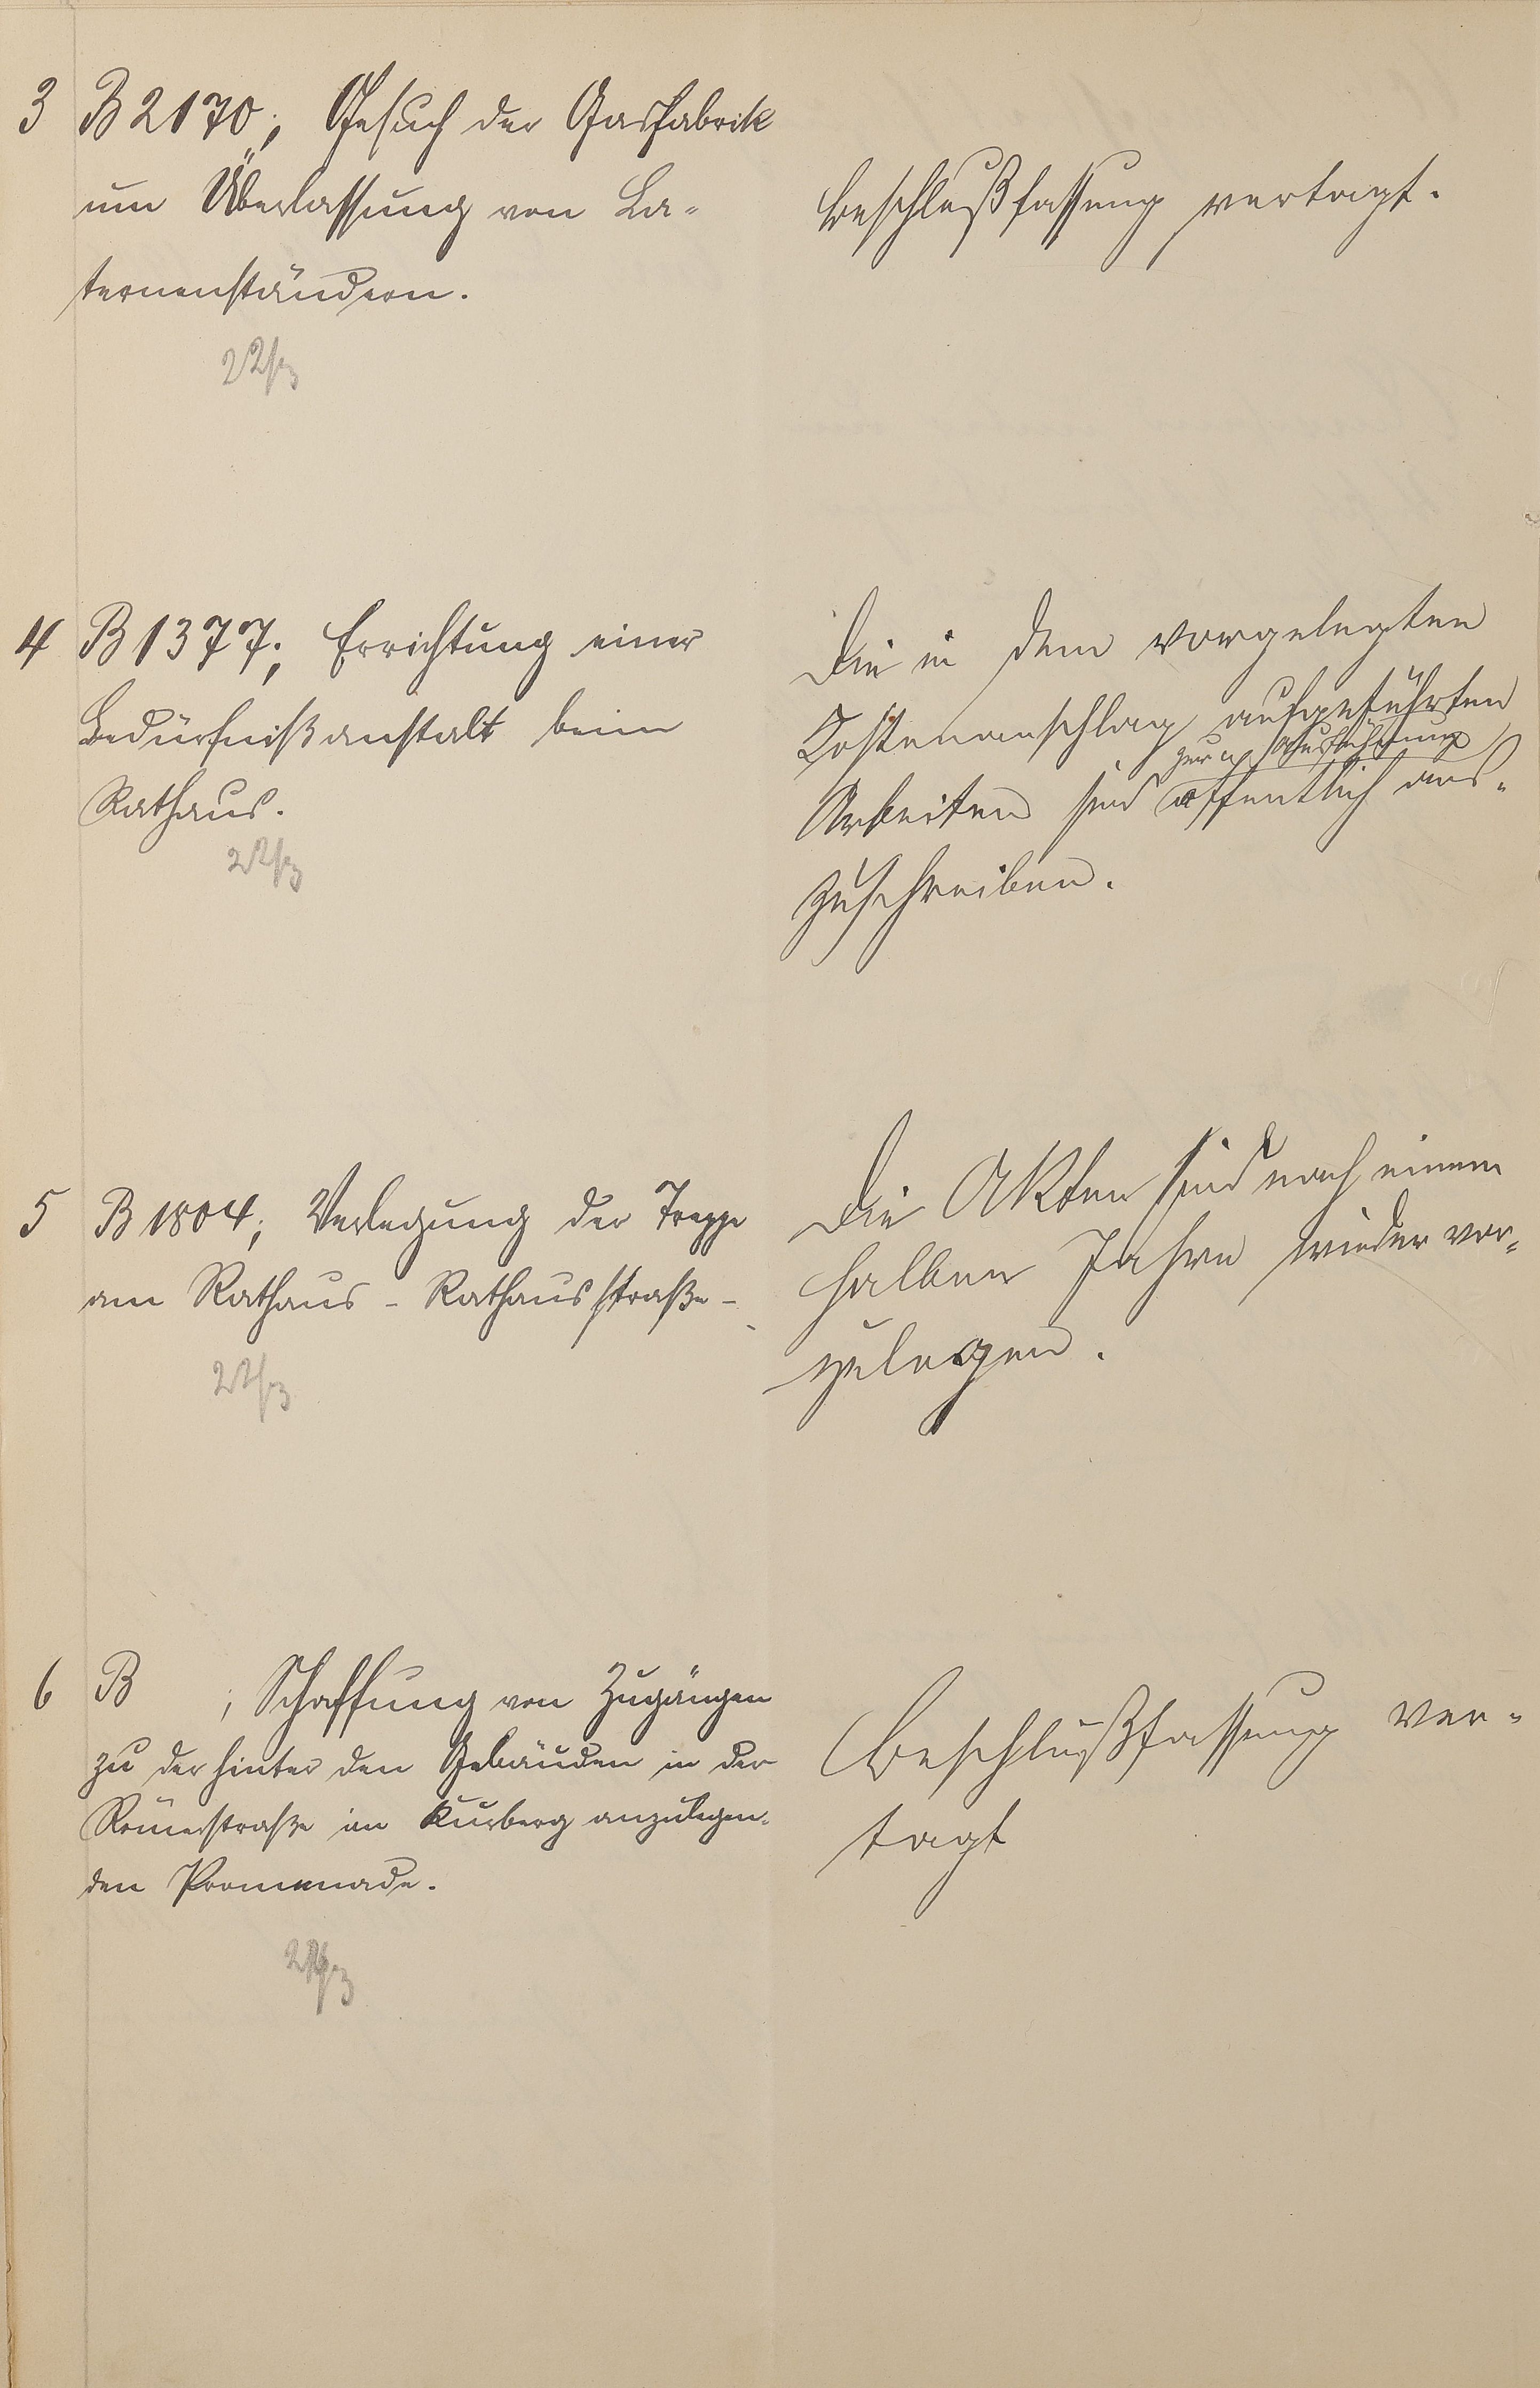 3 B 2170; Gesuch der Gasfabrik
um Überlassung von La-
ternenständern.
22/3
Beschlußfassung vertagt.
4 B 1377; Errichtung einer
Bedürfnißanstalt beim
Rathaus.
22/3
Die in dem vorgelegten
Kostenanschlag aufgeführten
zur Ausführung
Arbeiten sind öffentlich aus-
zuschreiben.
5 B 1804; Verlegung der Treppe
am Rathaus - Rathausstraße -
22/3
Die Akten sind nach einem
halben Jahre wieder vor-
zulegen.
6 B ; Schaffung von Zugängen
zu der hinter den Gebäuden in der
Römerstraße im anzulegen-
den Promenade.
22/3
Beschlußfassung ver-
tagt